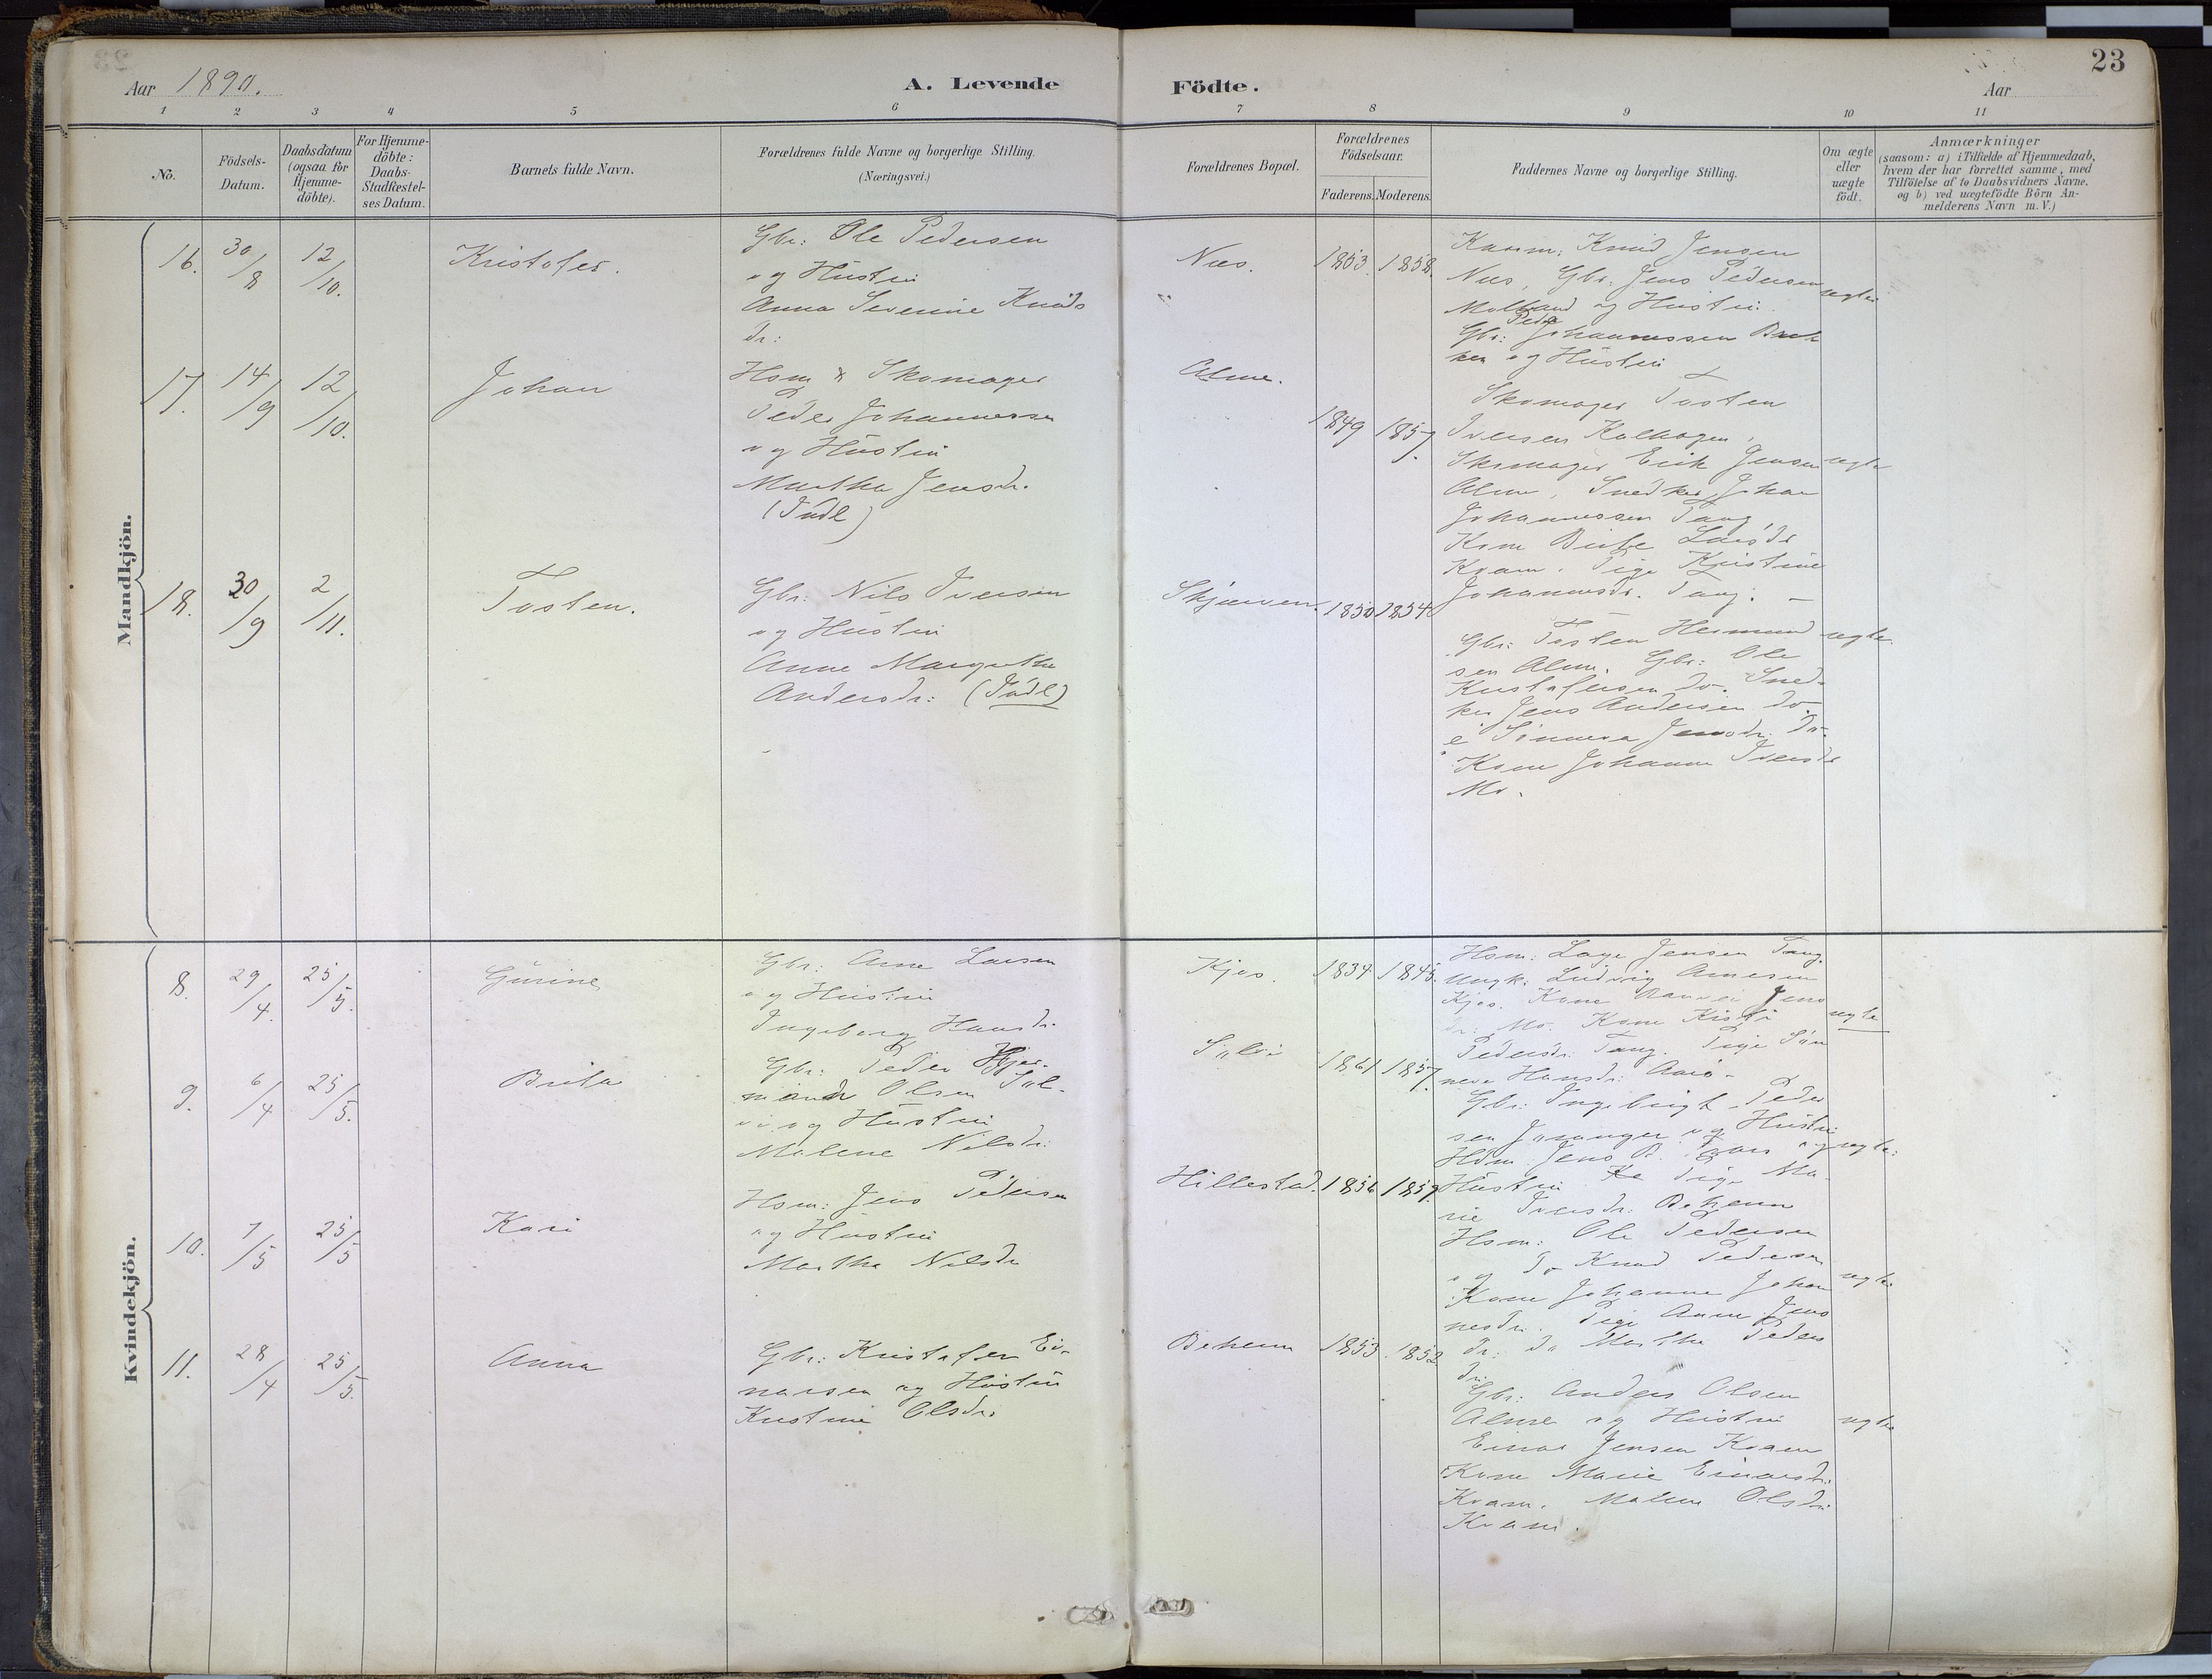 23
Aar 1890.
A. Levende Födte.
Aar
1 2 3 4 5 6 7 8 9 10 11
No.
Födsels-
Datum.
Daabsdatum
(ogsaa for
Hjemme-
döbte).
For Hjemme-
döbte:
Daabs-
Stadfæstel-
ses Datum.
Barnets fulde Navn.
Forældrenes fulde Navne og borgerlige Stilling.
(Næringsvei.)
Forældrenes Bopæl.
Forældrenes
Födselsaar.
Faderens. Moderens.
Faddernes Navne og borgerlige Stilling.
Om ægte
eller
uægte
födt.
Anmærkninger
(saasom: a) i Tilfælde af Hjemmedaab,
hvem der har forrettet samme, med
Tilföielse af to Daabsvidners Navne.
og b) ved uægtefödte Börn An-
melderens Navn m. V.)
Mandkjön.
16. 30/8 12/10. Kristofer.
Gbr: Ole Pedersen
og Hustru
Anna Severine Knuds
dr:
Nes. 1853. 1858.
Kaarm: Knud Jensen
Nes, Gbr: Jens Pedersen
Molland og Hustru.
Peder
Gbr: Johannessen Bak
ken og Hustru
ægte
17. 14/9 12/10. Johan
Hsm & Skomager
Peder Johannessen
og Hustru
Martha Jensdr.
(Indl)
Alme. 1849 1857.
Skomager Tosten
Iversen Kalhagen,
Skomager Erik Jensen
Alme, Snedker Johan
Johannessen Tang,
Kone Brite Larsdr
Kvam. Pige Kristine
Johannesdr. Tang. –
ægte
18. 30/9 2/11. Tosten.
Gbr: Nils Iversen
og Hustru
Anne Margrethe
Andersdr: (Indl)
Skjerven. 1850 1854
Gbr: Tosten Hermund
sen Alme. Gbr: Ole
Kristofersen do. Sned-
ker Jens Andersen do.
Sinneva Jensdr. do.
Kone Johanne Iversdr
Mo.
ægte.
Kvindekjön.
8. 29/4. 25/5. Gurine
Gbr: Arne Larsen
og Hustru
Ingeborg Hansdr.
Kjos. 1834. 1845.
Hsm: Lage Jensen Tang.
Ungk: Ludvig Arnesen
Kjos. Kone Jens
dr: Mo. Kone Kisti
Pedersdr. Tang. Pige Sün
neva Hansdr:
ægte
9. 6/4 25/5. Brita
Gbr: Peder Hjer-
mand Olsen Söl-
vi og Hustru
Malene Nilsdr:
Sölvi 1861 1857.
Gbr: Ingebrigt Peder
sen Joranger og Hustru
Hsm. Jens og
Hustru Pige Ma-
rie Iversdr: Beheim
ægte.
10. 7/5 25/5 Kari
Hsm: Jens Pedersen
og Hustru
Martha Nilsdr
Hillestad. 1856 1859.
Hsm: Ole Pedersen
og do Knud Pedersen
Kone Johanne Johan
nesdr. Pige Anne Jens
dr: do Martha Peders
dr.
ægte
11. 28/4 25/5. Anna
Gbr: Kristofer Ei-
narsen og Hustru
Kristine Olsdr:
Beheim 1853. 1852
Gbr: Anders Olsen
Alme og Hustru
Einar Jensen Kvam
Kone Marie Einarsdr:
Kvam. Malene Olsdr:
Kvam.
ægte